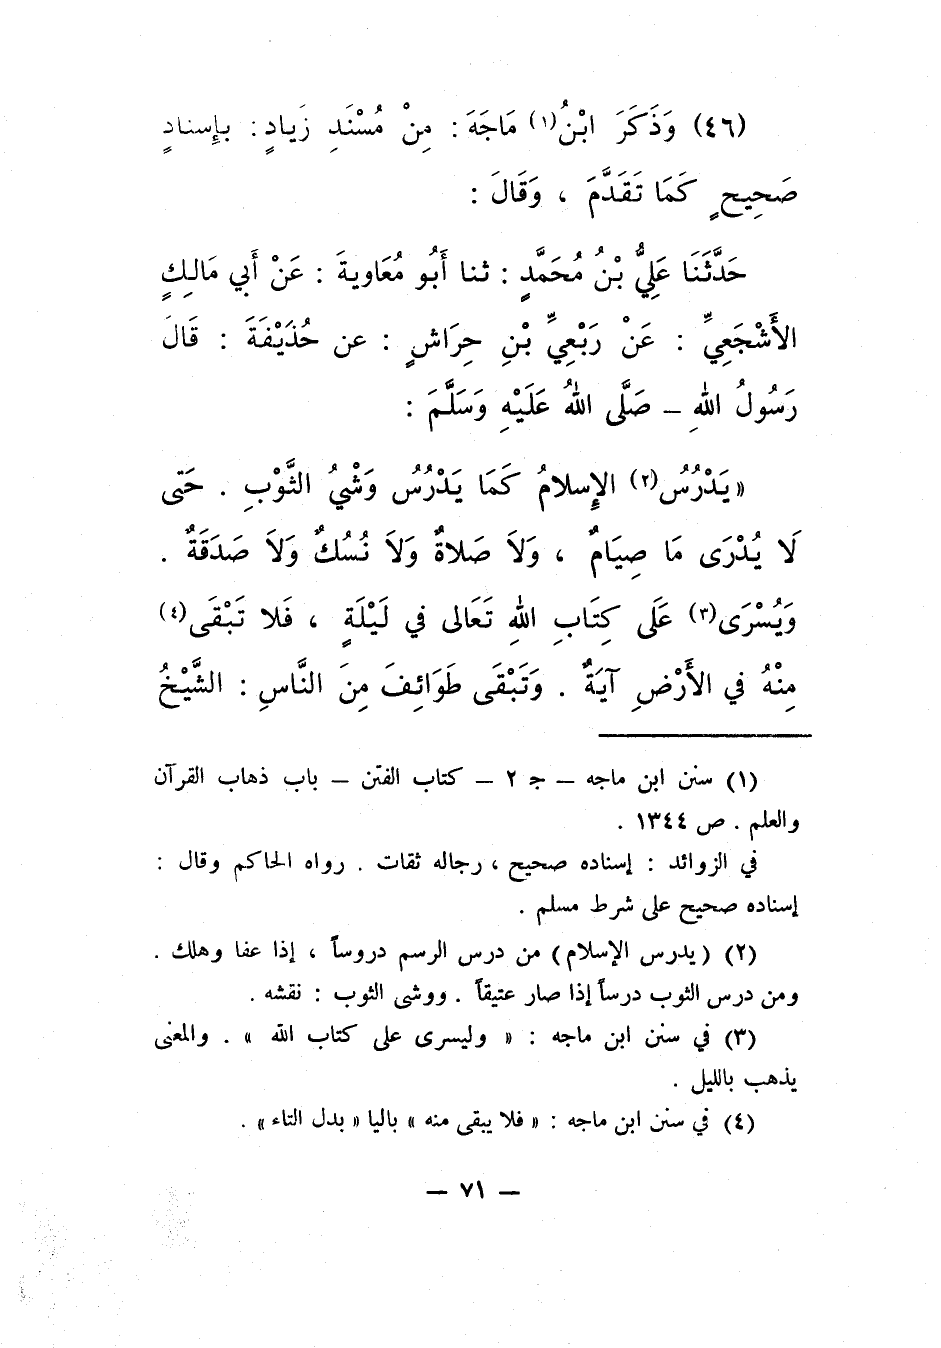 (٤٦) وَذَكَرَ ابْنُ(١) مَاجَهَ : مِنْ مُسْنَدِ زَيادٍ : بإِسنادٍ
صَحِيحٍ كَمَا تَقَدَّمَ ، وَقَالَ :
حَدَّثَنَا عَلِيُّ بْنُ مُحَمَّدٍ : ثنا أَبُو مُعَاويةَ : عَنْ أَبي مَالِكٍ
الأَشْجَعِيِّ : عَنْ رَبْعِيِّ بْنِ حِرَاشٍ : عن حُذَيْفَةَ : قَالَ
رَسُولُ اللهِ – صَلَّى اللهُ عَلَيْهِ وَسَلَّمَ :
« يَدْرُسُ(٢) الإِسلامُ كَمَا يَدْرُسُ وَشْيُ الثَّوْبِ . حَتى
لَا يُدْرَى مَا صِيَامٌ ، وَلاَ صَلاةٌ وَلاَ نُسُكٌ وَلاَ صَدَقَةٌ .
وَيُسْرَى(٣) عَلَى كِتَابِ اللهِ تَعَالى في لَيْلَةٍ ، فَلا تَبْقَى(٤)
مِنْهُ في الأَرْضِ آيَةٌ . وَتَبْقَى طَوَائِفَ مِنَ النَّاسِ : الشَّيْخُ
(١) سنن ابن ماجه – جـ ٢ – كتاب الفتن – باب ذهاب القرآن
والعلم . ص ١٣٤٤ .
في الزوائد : إسناده صحيح ، رجاله ثقات . رواه الحاكم وقال :
إسناده صحيح على شرط مسلم .
(٢) (يدرس الإسلام) من درس الرسم دروساً ، إذا عفا وهلك .
ومن درس الثوب درساً إذا صار عتيقاً . ووشى الثوب : نقشه .
(٣) في سنن ابن ماجه : « وليسرى على كتاب الله » . والمعنى
يذهب بالليل .
(٤) في سنن ابن ماجه : « فلا يبقى منه » باليا « بدل التاء » .
– ٧١ –